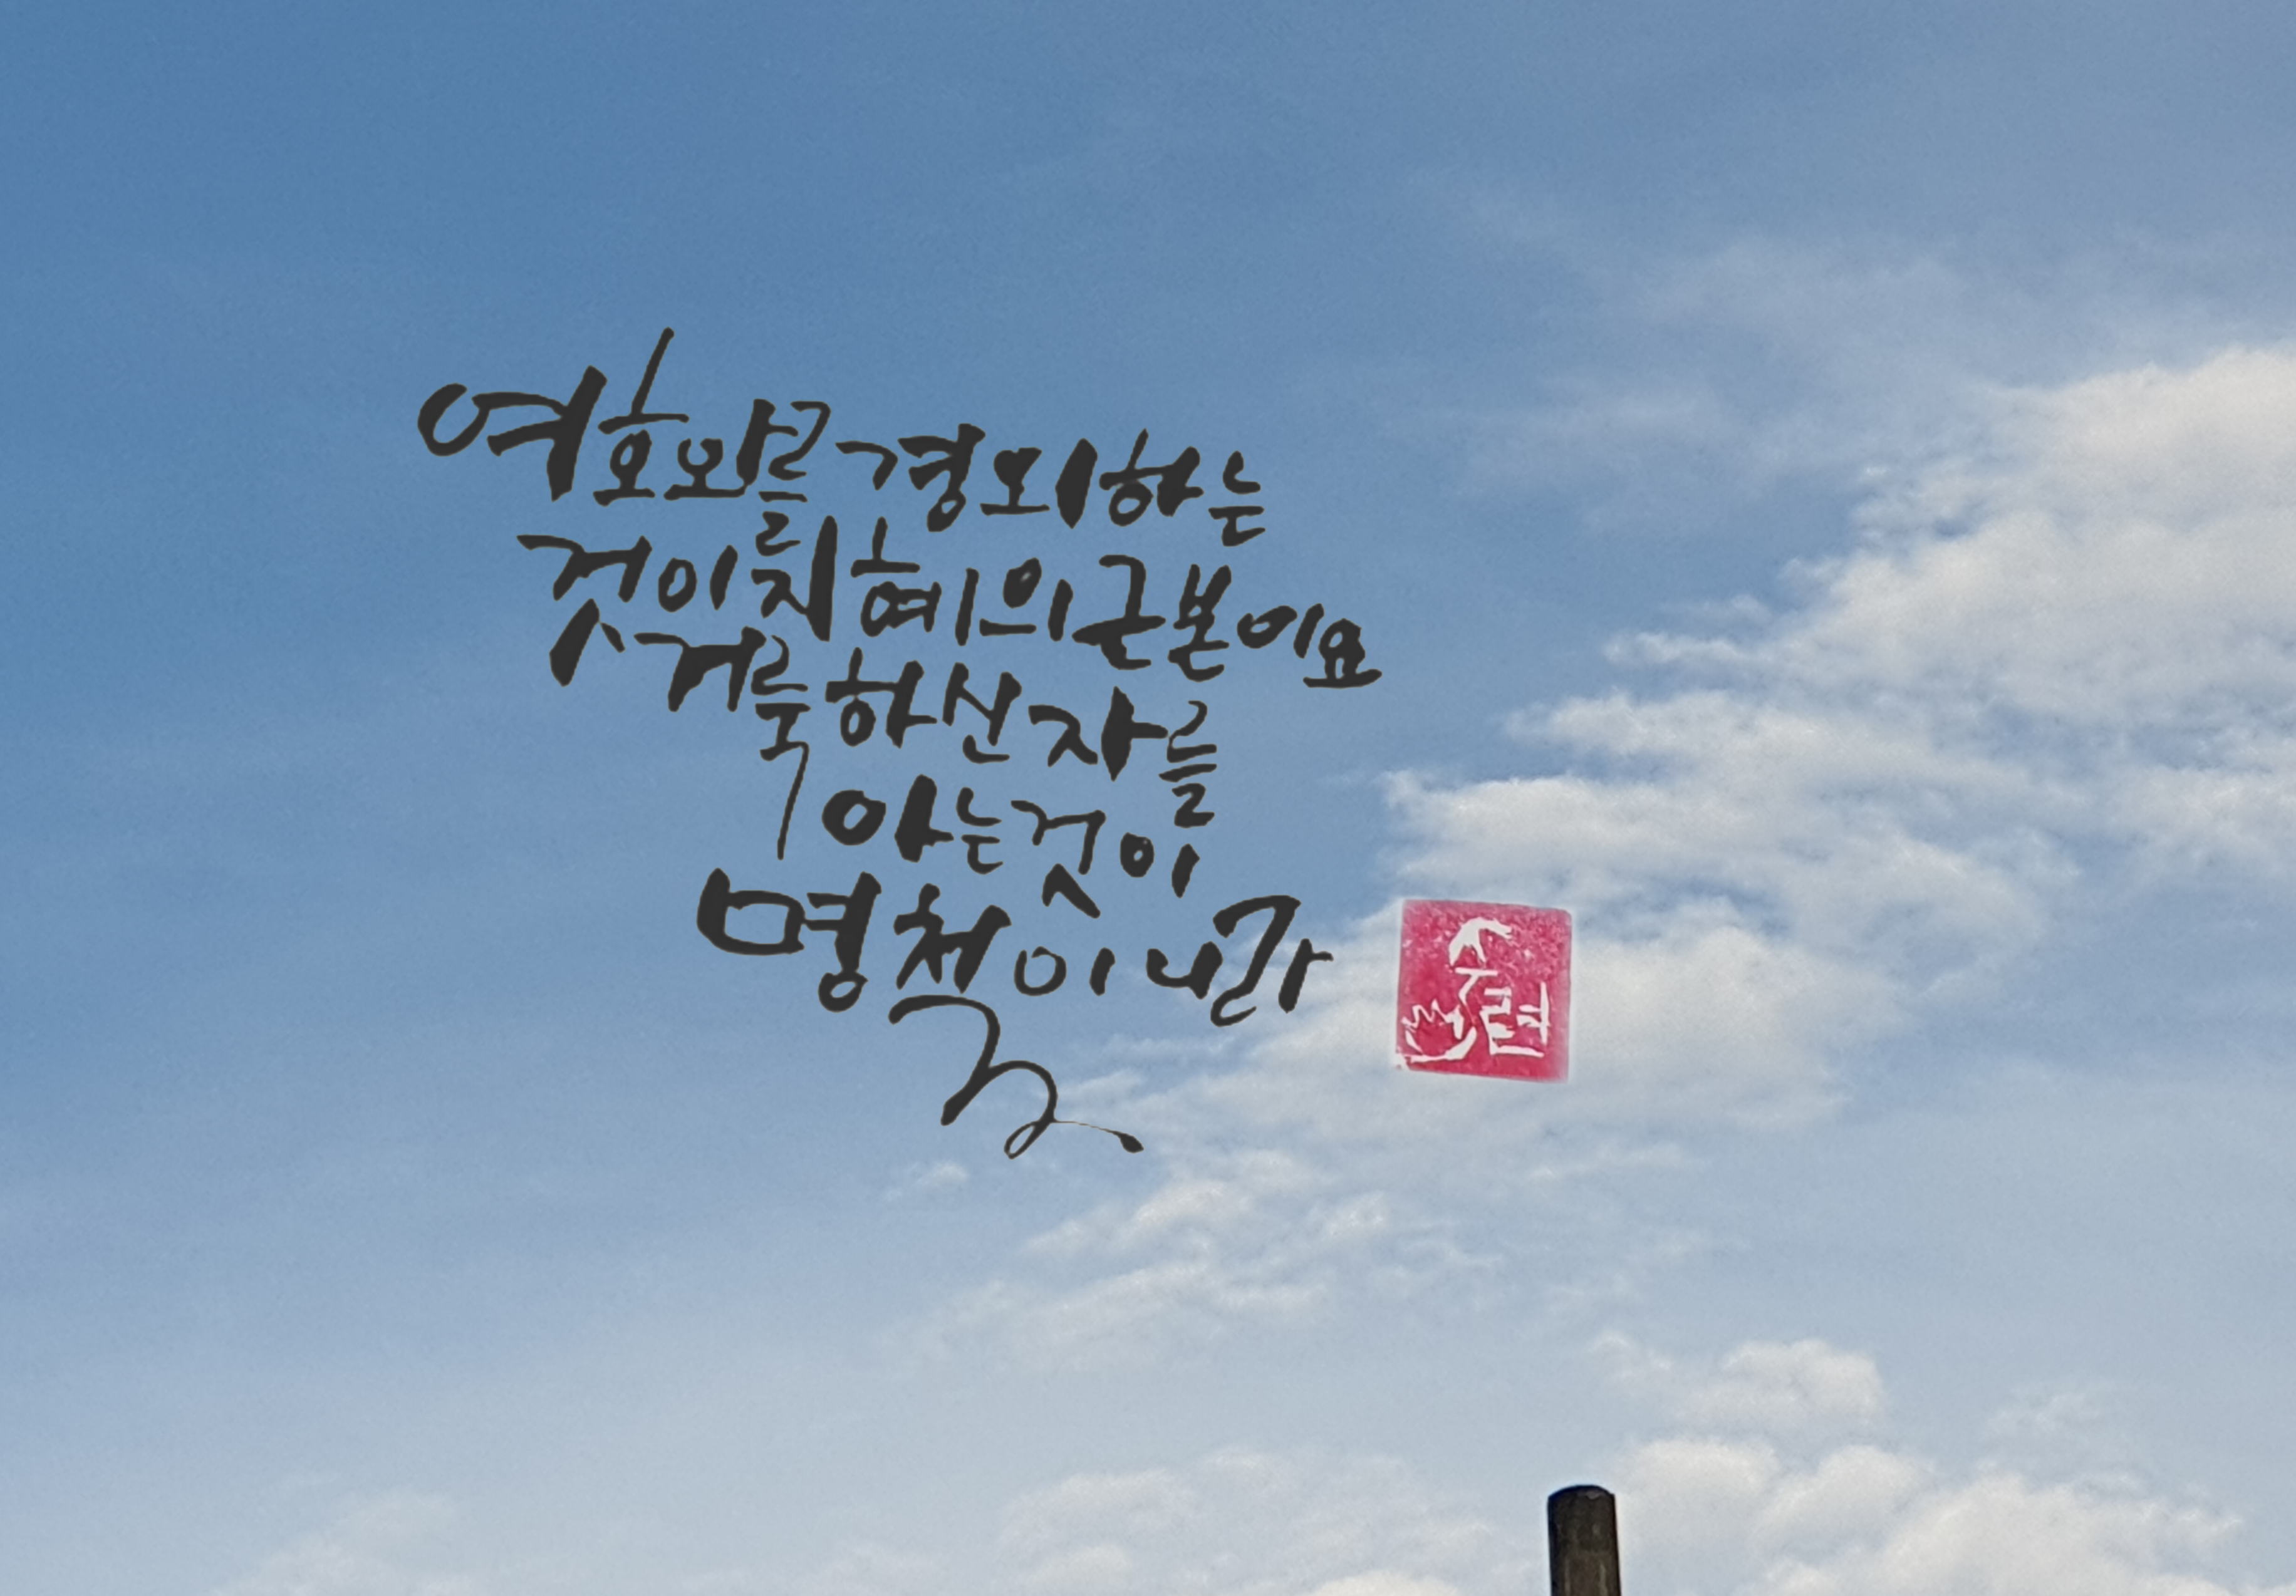 여호와를 경외하는
것이 지혜의 근본이요
거룩하신 자를
아는 것이
명철이니라
수련